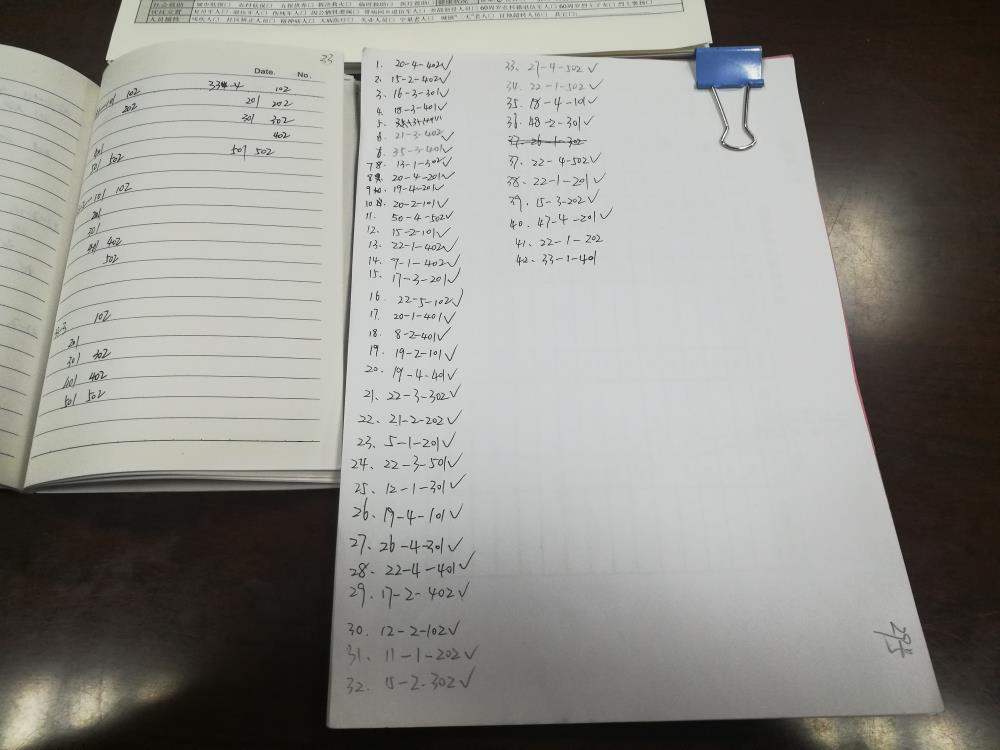 33
Date. No.
102 334-4 102
202 201 202
301 302
402
401 501 502
501 502
2-101 102
201
301
401 402
502
-3 102
201
301 302
401 402
501 502
1. 20-4-402✓
2. 15-2-402✓
3. 16-3-301✓
4. 18-3-401✓
5.
6. 21-3-402✓
6. 35-3-401✓
7 8. 13-1-302✓
20-4-201✓
9 10. 19-4-201✓
10 20-2-101✓
11. 50-4-502✓
12. 15-2-101✓
13. 22-1-402✓
14. 9-1-402✓
15. 17-3-201✓
16. 22-5-102✓
17. 20-1-401✓
18. 8-2-401✓
19. 19-2-101✓
20. 19-4-401✓
21. 22-3-302✓
22. 21-2-202✓
23. 5-1-201✓
24. 22-3-501✓
25. 12-1-301✓
26. 19-4-101✓
27. 26-4-301✓
28. 22-4-401✓
29. 17-2-402✓
30. 12-2-102✓
31. 11-1-202✓
32. 15-2-302✓
33. 27-4-502✓
34. 22-1-502✓
35. 18-4-101✓
36. 48-2-301✓
37. 26-1-302
37. 22-4-502✓
38. 22-1-201✓
39. 15-3-202✓
40. 47-4-201✓
41. 22-1-202
42. 33-1-401